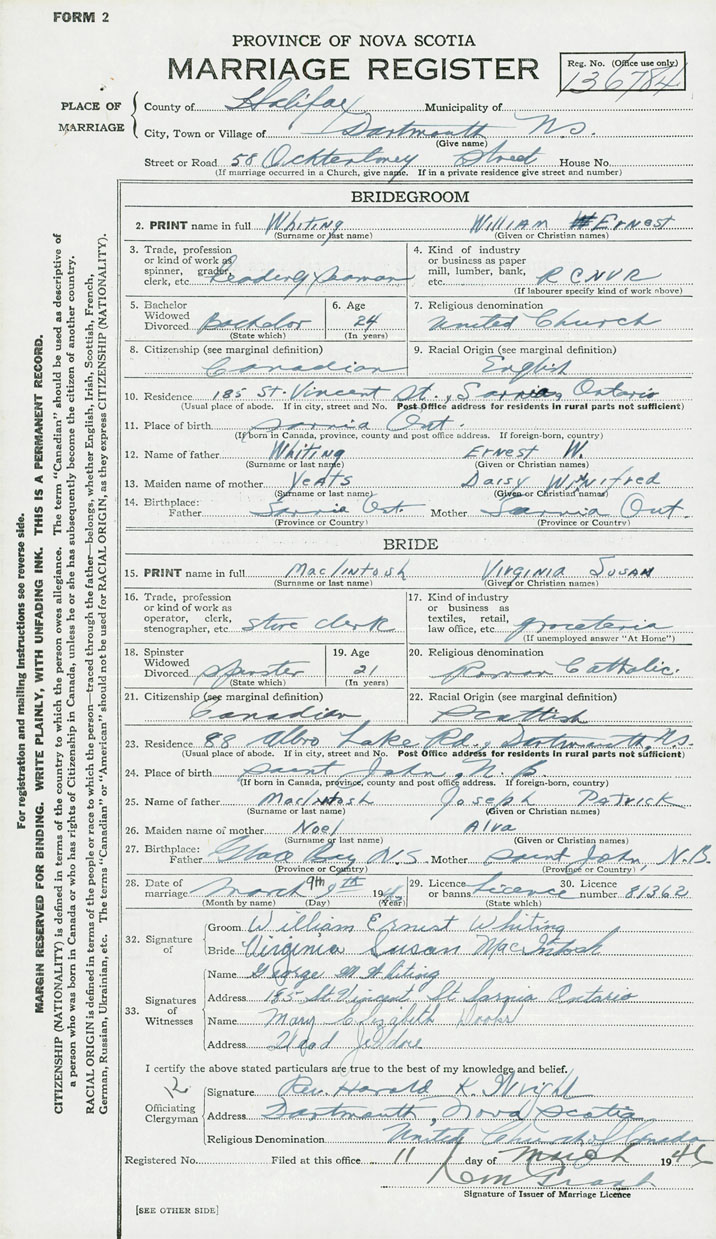 FORM 2
PROVINCE OF NOVA SCOTIA
MARRIAGE REGISTER
Reg. No. (Office use only)
136784
PLACE OF MARRIAGE
County of Halifax Municipality of
City, Town or Village of Dartmouth N.S.
(Give name)
Street or Road 58 Ochterloney Street House No.
(If marriage occurred in a Church, give name. If in a private residence give street and number)
BRIDEGROOM
2. PRINT name in full Whiting William Ernest
(Surname or last name) (Given or Christian names)
3. Trade, profession or kind of work as spinner, grader, clerk, etc. Leading Seaman
4. Kind of industry or business as paper mill, lumber, bank, etc. RCNVR
(If labourer specify kind of work above)
5. Bachelor Widowed Divorced Bachelor
(State which)
6. Age 24
(In years)
7. Religious denomination
United Church
8. Citizenship (see marginal definition)
Canadian
9. Racial Origin (see marginal definition)
English
10. Residence 185 St. Vincent St., Sarnia Ontario
(Usual place of abode. If in city, street and No. Post Office address for residents in rural parts not sufficient)
11. Place of birth Sarnia Ont.
(If born in Canada, province, county and post office address. If foreign-born, country)
12. Name of father Whiting Ernest W.
(Surname or last name) (Given or Christian names)
13. Maiden name of mother Yeats Daisy Winifred
(Surname or last name) (Given or Christian names)
14. Birthplace: Father Sarnia Ont. Mother Sarnia Ont.
(Province or Country) (Province or Country)
BRIDE
15. PRINT name in full MacIntosh Virginia Susan
(Surname or last name) (Given or Christian names)
16. Trade, profession or kind of work as operator, clerk, stenographer, etc. store clerk
17. Kind of industry or business as textiles, retail, law office, etc. groceteria
(If unemployed answer "At Home")
18. Spinster Widowed Divorced Spinster
(State which)
19. Age 21
(In years)
20. Religious denomination
Roman Catholic.
21. Citizenship (see marginal definition)
Canadian
22. Racial Origin (see marginal definition)
Scottish
23. Residence 88 Albro Lake Rd., Dartmouth, N.S.
(Usual place of abode. If in city, street and No. Post Office address for residents in rural parts not sufficient)
24. Place of birth Saint John, N.B.
(If born in Canada, province, county and post office address. If foreign-born, country)
25. Name of father MacIntosh Joseph Patrick
(Surname or last name) (Given or Christian names)
26. Maiden name of mother Noel Alva
(Surname or last name) (Given or Christian names)
27. Birthplace: Father Glace Bay N.S. Mother Saint John, N.B.
(Province or Country) (Province or Country)
28. Date of marriage March 9th 9th 19
(Month by name) (Day) (Year)
29. Licence or banns Licence
(State which)
30. Licence number 81362
32. Signature of
Groom William Ernest Whiting
Bride Virginia Susan MacIntosh
33. Signatures of Witnesses
Name George M Whiting
Address 185 St Vincent St Sarnia Ontario
Name Mary Elizabeth
Address Head Jeddore
I certify the above stated particulars are true to the best of my knowledge and belief.
12
Officiating Clergyman
Signature Rev. Harold K. Wright
Address Dartmouth, Nova Scotia
Religious Denomination United Church of Canada
Registered No. Filed at this office 11 day of March 19
Signature of Issuer of Marriage Licence
[SEE OTHER SIDE]
For registration and mailing instructions see reverse side.
MARGIN RESERVED FOR BINDING. WRITE PLAINLY, WITH UNFADING INK. THIS IS A PERMANENT RECORD.
CITIZENSHIP (NATIONALITY) is defined in terms of the country to which the person owes allegiance. The term "Canadian" should be used as descriptive of
a person who was born in Canada or who has rights of Citizenship in Canada, unless he or she has subsequently become the citizen of another country.
RACIAL ORIGIN is defined in terms of the people or race to which the person—traced through the father—belongs, whether English, Irish, Scottish, French,
German, Russian, Ukrainian, etc. The terms "Canadian" or "American" should not be used for RACIAL ORIGIN, as they express CITIZENSHIP (NATIONALITY).